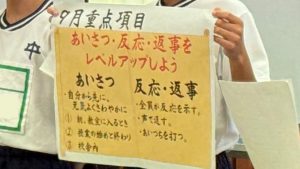 9月重点項目
あいさつ・反応・返事を
レベルアップしよう
あいさつ
・自分から先に。
元気よくさわやかに
① 朝、教室に入るとき
② 授業の始めと終わり
③ 校舎内
反応・返事
・全員が反応を示す。
・声で返す。
・あいづちを打つ。